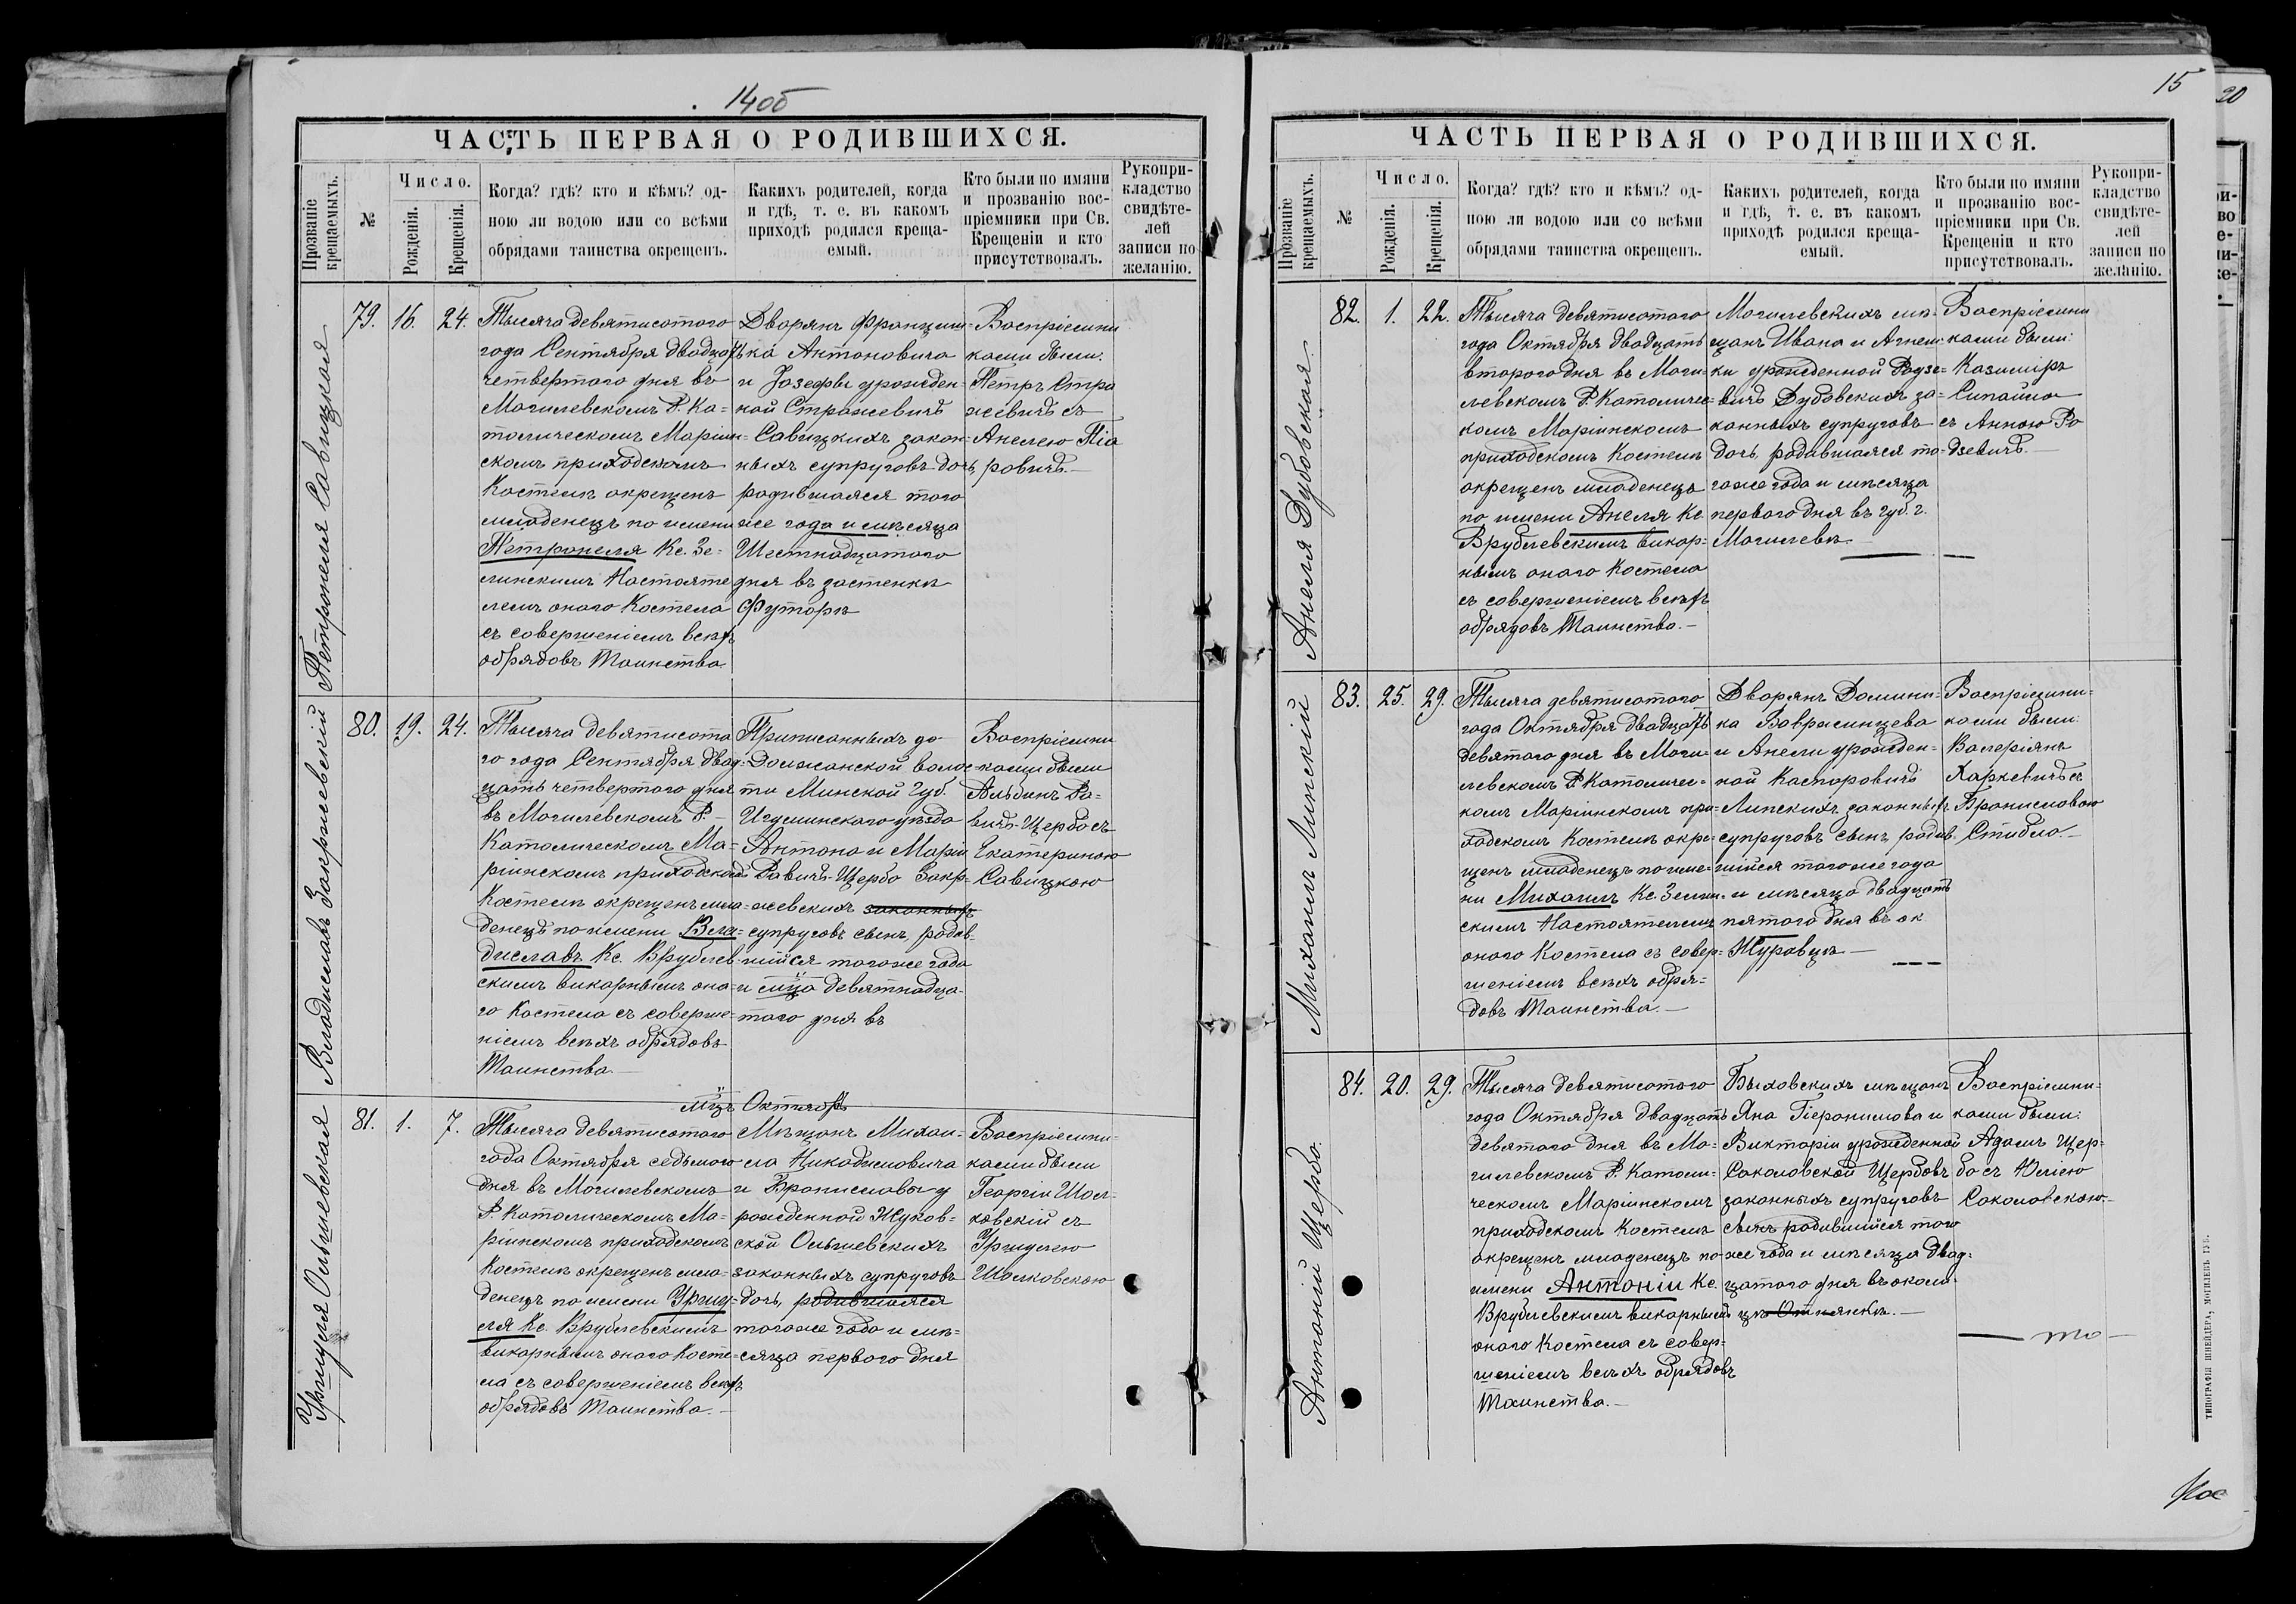 14об
ЧАСТЬ ПЕРВАЯ О РОДИВШИХСЯ.
Прозваніе крещаемыхъ.
№
Число.
Рожденія.
Крещенія.
Когда? гдѣ? кто и кѣмъ? од-
ною ли водою или со всѣми
обрядами таинства окрещенъ.
Какихъ родителей, когда
и гдѣ, т. е. въ какомъ
приходѣ родился креща-
емый.
Кто были по имяни
и прозванію вос-
пріемники при Св.
Крещеніи и кто
присутствовалъ.
Рукопри-
кладство
свидѣте-
лей
записи по
желанію.
Петронеля Савицкая
79. 16. 24.
Тысяча девятисотого
года Сентября двадцать
четвертого дня въ
Могилевскомъ Р. Ка-
толическомъ Маріин-
скомъ приходскомъ
Костелѣ окрещенъ
младенецъ по имени
Петронеля Кс. Зе-
линскимъ Настояте
лемъ оного Костела
съ совершеніемъ всѣхъ
обрядовъ Таинства
Дворянъ Франциш-
ка Антоновича
и Іозефы урожден-
ной Стражевичъ
Савицкихъ закон-
ныхъ супруговъ дочь
родившаяся того
же года и мѣсяца
Шестнадцатого
дня въ застенкѣ
Футоркъ
Воспріемни
ками были:
Петръ Стра
жевичъ съ
Анелею Піа
ровичъ.—
Владиславъ Закржевскій
80. 19. 24.
Тысяча девятисото
го года Сентября двад-
цать четвертого дня
въ Могилевскомъ Р.-
Католическомъ Ма-
ріинскомъ приходскомъ
Костелѣ окрещенъ мла-
денецъ по имени Вла-
диславъ Кс. Врублев-
скимъ викарнымъ она-
го Костела съ соверше-
ніемъ всѣхъ обрядовъ
Таинства.—
Приписанныхъ до
Должанской волос-
ти Минской Губ.
Игуминскаго уѣзда
Антона и Маріи
Равичъ-Щербо Закр-
жевскихъ законныхъ
супруговъ сынъ, родив-
шійся тогоже года
и мца девятнадца-
того дня въ
Воспріемни
ками были
Альбинъ Ра-
вичъ-Щербо съ
Екатериною
Савицкою
мцъ Октябрь
Уршуля Ольшевская
81. 1. 7.
Тысяча девятисотого
года Октября седьмого
дня въ Могилевскомъ
Р. Католическомъ Ма-
ріинскомъ приходскомъ
Костелѣ окрещенъ мла-
денецъ по имени Уршу-
ля Кс. Врублевскимъ
викарнымъ оного Косте-
ла съ совершеніемъ всѣхъ
обрядовъ Таинства.—
Мѣщанъ Михаи-
ла Никодимовича
и Брониславы у
рожденной Жуков-
ской Ольшевскихъ
законныхъ супруговъ
дочь, родившаяся
тогоже года и мѣ-
сяца первого дня
Воспріемни-
ками были
Георгій Шол-
ковскій съ
Уршулею
Шолковскою
15
ЧАСТЬ ПЕРВАЯ О РОДИВШИХСЯ.
Прозваніе крещаемыхъ.
№
Число.
Рожденія.
Крещенія.
Когда? гдѣ? кто и кѣмъ? од-
ною ли водою или со всѣми
обрядами таинства окрещенъ.
Какихъ родителей, когда
и гдѣ, т. е. въ какомъ
приходѣ родился креща-
емый.
Кто были по имяни
и прозванію вос-
пріемники при Св.
Крещеніи и кто
присутствовалъ.
Рукопри-
кладство
свидѣте-
лей
записи по
желанію.
Анеля Дубовская.
82. 1. 22.
Тысяча девятисотого
года Октября двадцать
второго дня въ Моги-
левскомъ Р. Католичес-
комъ Маріинскомъ
приходскомъ Костелѣ
окрещенъ младенецъ
по имени Анеля Кс.
Врублевскимъ викар-
нымъ оного Костела
съ совершеніемъ всѣхъ
обрядовъ Таинства.—
Могилевскихъ мѣ-
щанъ Ивана и Агнеш-
ки урожденной Родзе-
вичъ Дубовскихъ за-
конныхъ супруговъ
дочь, родившаяся то-
гоже года и мѣсяца
первого дня въ губ. г.
Могилевѣ.—
Воспріемни
ками были:
Казиміръ
Сипайло
съ Анною Ро
дзевичъ.—
Михаилъ Липскій
83. 25. 29.
Тысяча девятисотого
года Октября двадцать
девятого дня въ Моги-
левскомъ Р. Католичес-
комъ Маріинскомъ при-
ходскомъ Костелѣ окре-
щенъ младенецъ по име-
ни Михаилъ Кс. Зелин-
скимъ Настоятелемъ
оного Костела съ совер-
шеніемъ всѣхъ обря-
довъ Таинства.—
Дворянъ Домини-
ка Вавржинцева
и Анели урожден-
ной Каспоровичъ
Липскихъ законныхъ
супруговъ сынъ, родив-
шійся тогоже года
и мѣсяца двадцать
пятого дня въ ок
Журавцѣ—
Воспріемни-
ками были:
Валеріянъ
Харкевичъ съ
Брониславою
Стибло.—
Антоній Щербо.
84. 20. 29.
Тысяча девятисотого
года Октября двадцать
девятого дня въ Мо-
гилевскомъ Р. Католи-
ческомъ Маріинскомъ
приходскомъ Костелѣ
окрещенъ младенецъ по
имени Антоній Кс.
Врублевскимъ викарнымъ
оного Костела съ совер-
шеніемъ всѣхъ обрядовъ
Таинства.—
Быховскихъ мѣщанъ
Яна Гіеронимова и
Викторіи урожденной
Соколовской Щербовъ
законныхъ супруговъ
сынъ родившійся того
же года и мѣсяца двад-
цатого дня въ околи-
цѣ
Воспріемни-
ками были:
Адамъ Щер-
бо съ Юліею
Соколовскою.—
ТИПОГРАФІЯ ШНЕЙДЕРА, МОГИЛЕВЪ ГУБ.
20